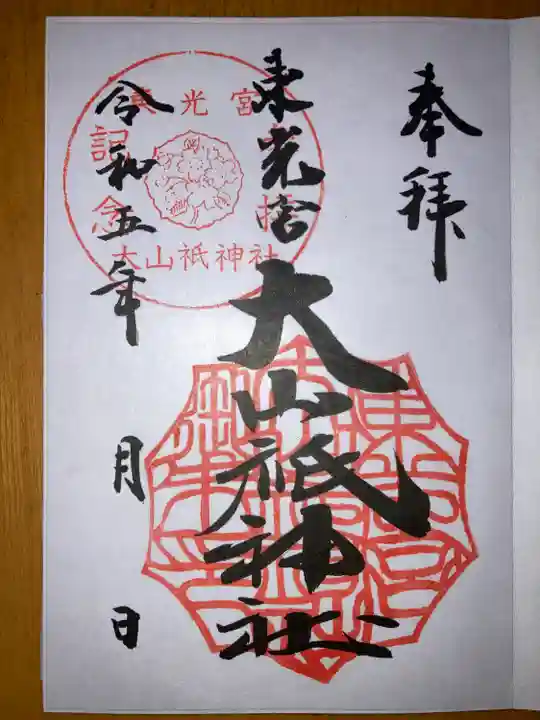 奉拝
東光宮
大山祇神社
令和五年
月
日
光宮
記念
大山祇神社